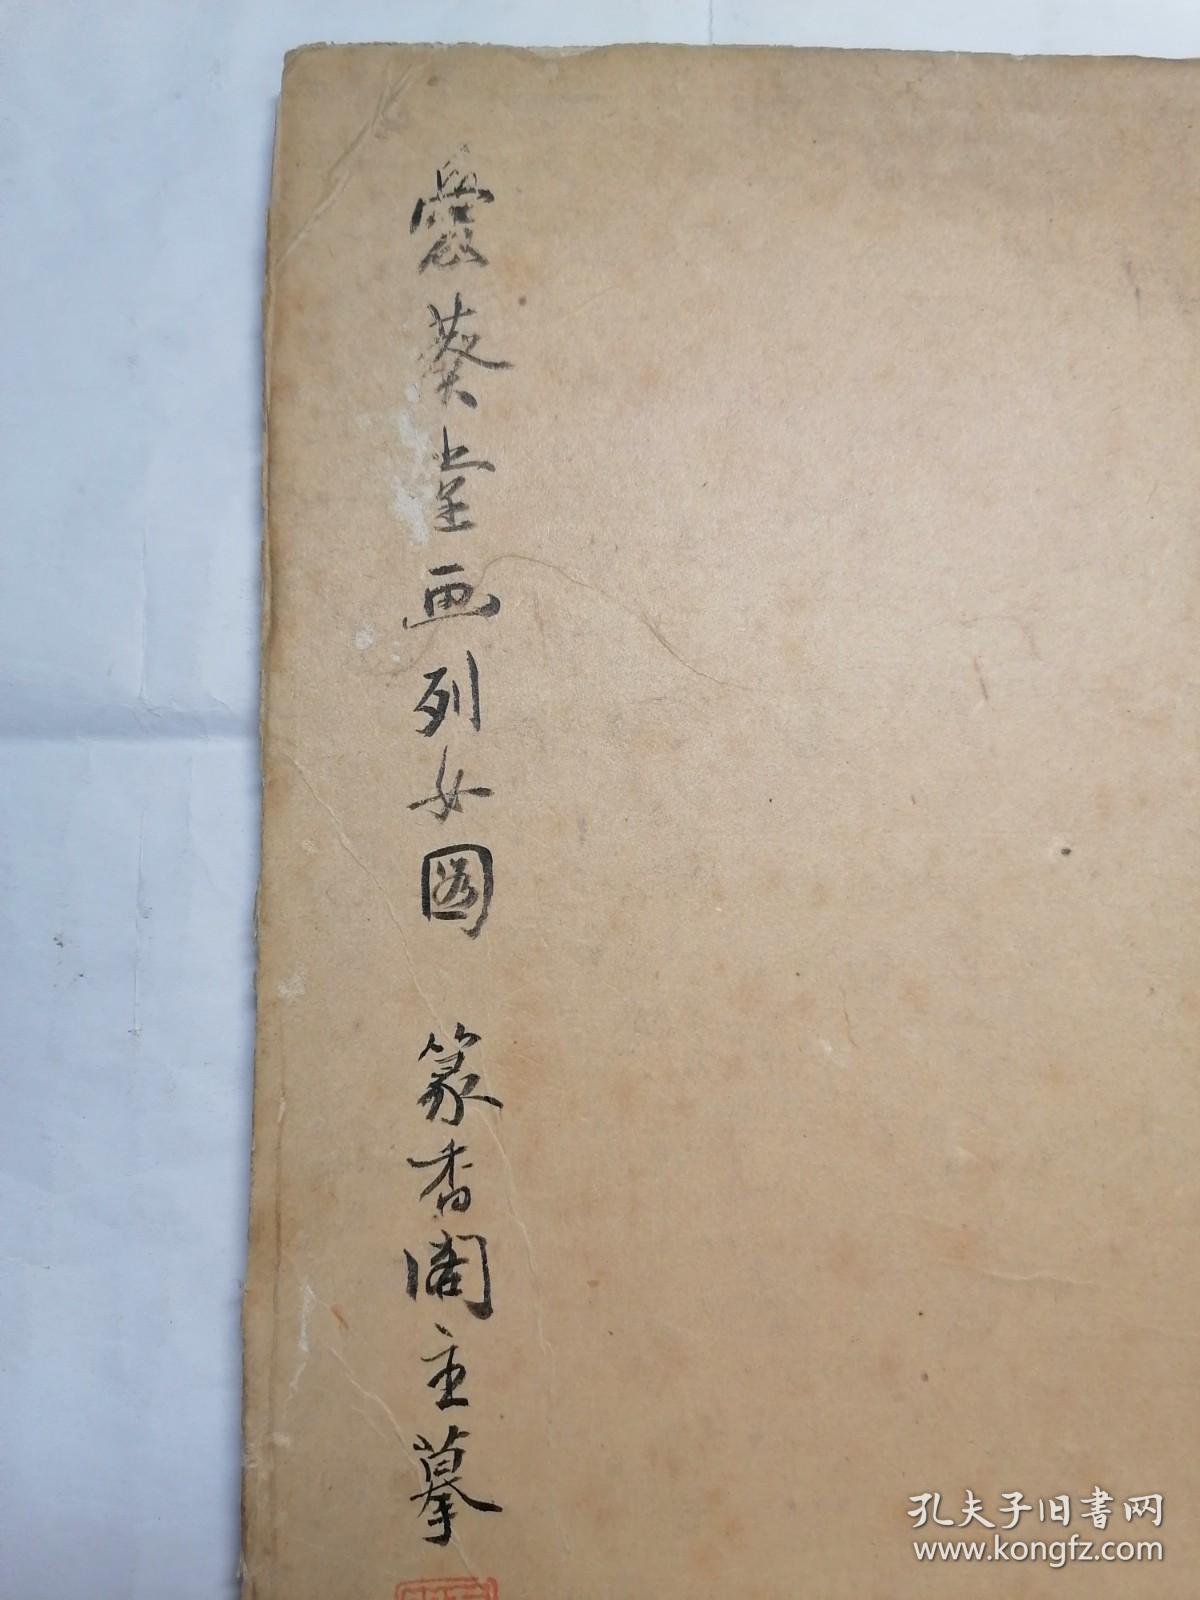 葵堂画列女圖 篆香閣主摹
孔夫子旧书网
www.kongfz.com